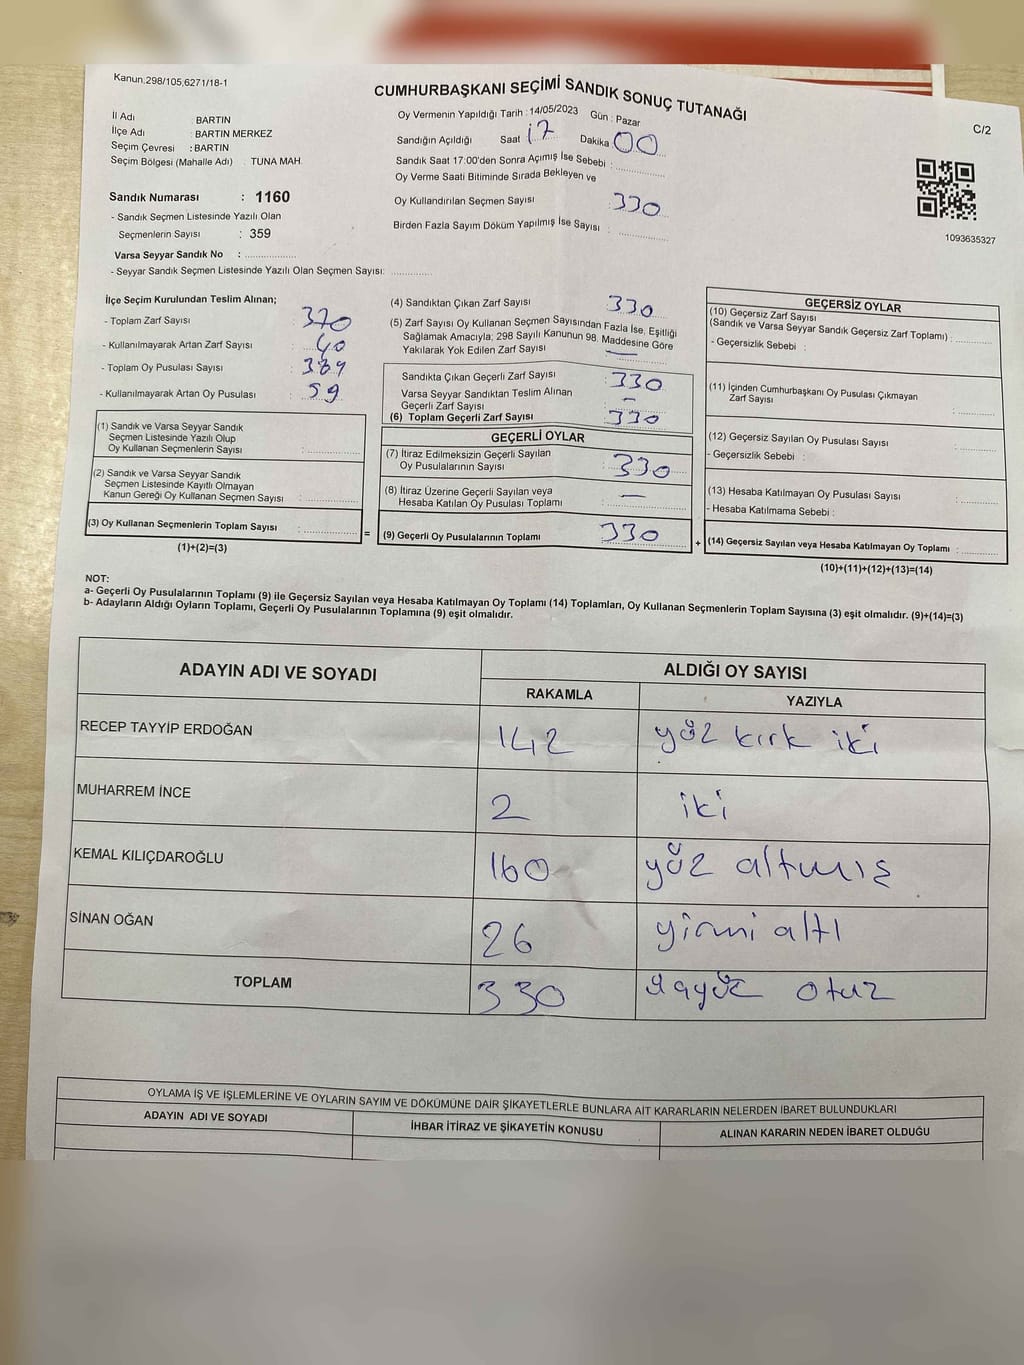 Kanun,298/105,6271/18-1
CUMHURBAŞKANI SEÇİMİ SANDIK SONUÇ TUTANAĞI
C/2
İl Adı : BARTIN
İlçe Adı : BARTIN MERKEZ
Seçim Çevresi : BARTIN
Seçim Bölgesi (Mahalle Adı) : TUNA MAH.
Oy Vermenin Yapıldığı Tarih : 14/05/2023 Gün : Pazar
Sandığın Açıldığı Saat 17 Dakika 00
Sandık Saat 17:00'den Sonra Açımış İse Sebebi :
Oy Verme Saati Bitiminde Sırada Bekleyen ve
Oy Kullandırılan Seçmen Sayısı : 330
Birden Fazla Sayım Döküm Yapılmış İse Sayısı :
1093635327
Sandık Numarası : 1160
- Sandık Seçmen Listesinde Yazılı Olan
Seçmenlerin Sayısı : 359
Varsa Seyyar Sandık No :
- Seyyar Sandık Seçmen Listesinde Yazılı Olan Seçmen Sayısı:
İlçe Seçim Kurulundan Teslim Alınan;
- Toplam Zarf Sayısı : 370
- Kullanılmayarak Artan Zarf Sayısı : 40
- Toplam Oy Pusulası Sayısı : 389
- Kullanılmayarak Artan Oy Pusulası : 59
(1) Sandık ve Varsa Seyyar Sandık
Seçmen Listesinde Yazılı Olup
Oy Kullanan Seçmenlerin Sayısı :
(2) Sandık ve Varsa Seyyar Sandık
Seçmen Listesinde Kayıtlı Olmayan
Kanun Gereği Oy Kullanan Seçmen Sayısı :
(3) Oy Kullanan Seçmenlerin Toplam Sayısı :
(1)+(2)=(3)
=
(4) Sandıktan Çıkan Zarf Sayısı : 330
(5) Zarf Sayısı Oy Kullanan Seçmen Sayısından Fazla İse, Eşitliği
Sağlamak Amacıyla; 298 Sayılı Kanunun 98. Maddesine Göre
Yakılarak Yok Edilen Zarf Sayısı : —
Sandıkta Çıkan Geçerli Zarf Sayısı : 330
Varsa Seyyar Sandıktan Teslim Alınan
Geçerli Zarf Sayısı : —
(6) Toplam Geçerli Zarf Sayısı : 330
GEÇERLİ OYLAR
(7) İtiraz Edilmeksizin Geçerli Sayılan
Oy Pusulalarının Sayısı : 330
(8) İtiraz Üzerine Geçerli Sayılan veya
Hesaba Katılan Oy Pusulası Toplamı : —
(9) Geçerli Oy Pusulalarının Toplamı : 330
+
GEÇERSİZ OYLAR
(10) Geçersiz Zarf Sayısı
(Sandık ve Varsa Seyyar Sandık Geçersiz Zarf Toplamı) :
- Geçersizlik Sebebi :
(11) İçinden Cumhurbaşkanı Oy Pusulası Çıkmayan
Zarf Sayısı :
(12) Geçersiz Sayılan Oy Pusulası Sayısı :
- Geçersizlik Sebebi :
(13) Hesaba Katılmayan Oy Pusulası Sayısı :
- Hesaba Katılmama Sebebi :
(14) Geçersiz Sayılan veya Hesaba Katılmayan Oy Toplamı :
(10)+(11)+(12)+(13)=(14)
NOT:
a- Geçerli Oy Pusulalarının Toplamı (9) ile Geçersiz Sayılan veya Hesaba Katılmayan Oy Toplamı (14) Toplamları, Oy Kullanan Seçmenlerin Toplam Sayısına (3) eşit olmalıdır. (9)+(14)=(3)
b- Adayların Aldığı Oyların Toplamı, Geçerli Oy Pusulalarının Toplamına (9) eşit olmalıdır.
ADAYIN ADI VE SOYADI ALDIĞI OY SAYISI
RAKAMLA YAZIYLA
RECEP TAYYİP ERDOĞAN 142 yüz kırk iki
MUHARREM İNCE 2 iki
KEMAL KILIÇDAROĞLU 160 yüz altmış
SİNAN OĞAN 26 yirmi altı
TOPLAM 330 otuz
OYLAMA İŞ VE İŞLEMLERİNE VE OYLARIN SAYIM VE DÖKÜMÜNE DAİR ŞİKAYETLERLE BUNLARA AİT KARARLARIN NELERDEN İBARET BULUNDUKLARI
ADAYIN ADI VE SOYADI İHBAR İTİRAZ VE ŞİKAYETİN KONUSU ALINAN KARARIN NEDEN İBARET OLDUĞU